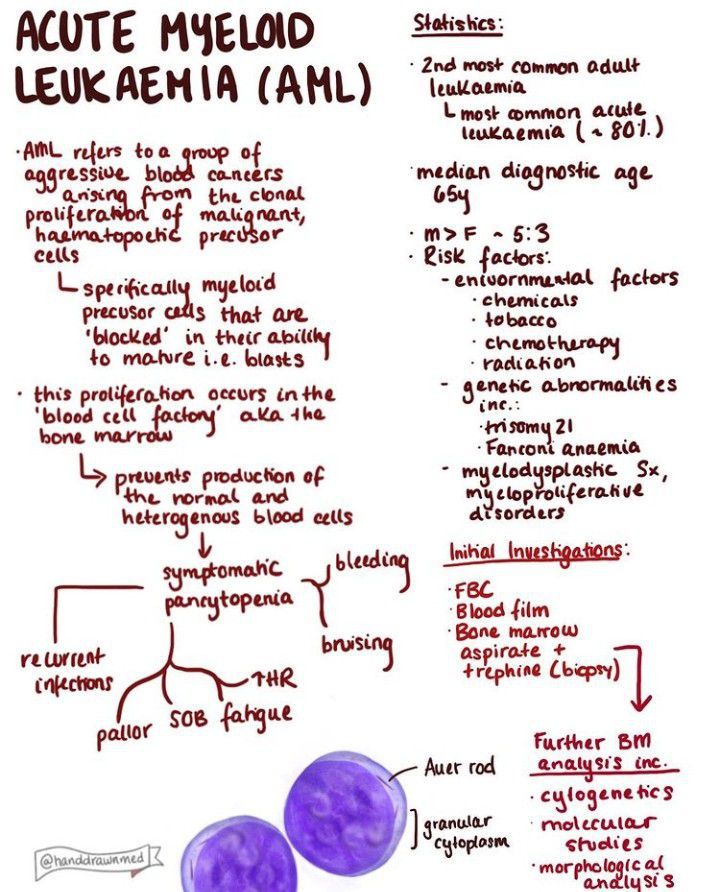 ACUTE MYELOID
LEUKAEMIA (AML)
· AML refers to a group of
aggressive blood cancers
arising from the clonal
proliferation of malignant,
haematopoetic precusor
cells
specifically myeloid
precusor cells that are
'blocked' in their ability
to mature i.e. blasts
· this proliferation occurs in the
'blood cell factory' aka the
bone marrow
prevents production of
the normal and
heterogenous blood cells
symptomatic
pancytopenia
bleeding
bruising
recurrent
infections
pallor
SOB
fatigue
↑HR
Statistics:
· 2nd most common adult
leukaemia
most common acute
leukaemia (~80%)
· median diagnostic age
65y
· m>F ~ 5:3
· Risk factors:
- enivornmental factors
· chemicals
· tobacco
· chemotherapy
· radiation
- genetic abnormalities
inc.:
· trisomy 21
· Fanconi anaemia
- myelodysplastic Sx,
myeloproliferative
disorders
Initial Investigations:
· FBC
· Blood film
· Bone marrow
aspirate +
trephine (biopsy)
Further BM
analysis inc.
· cytogenetics
· molecular
studies
· morphological
analysis
Auer rod
granular
cytoplasm
@handdrawnmed